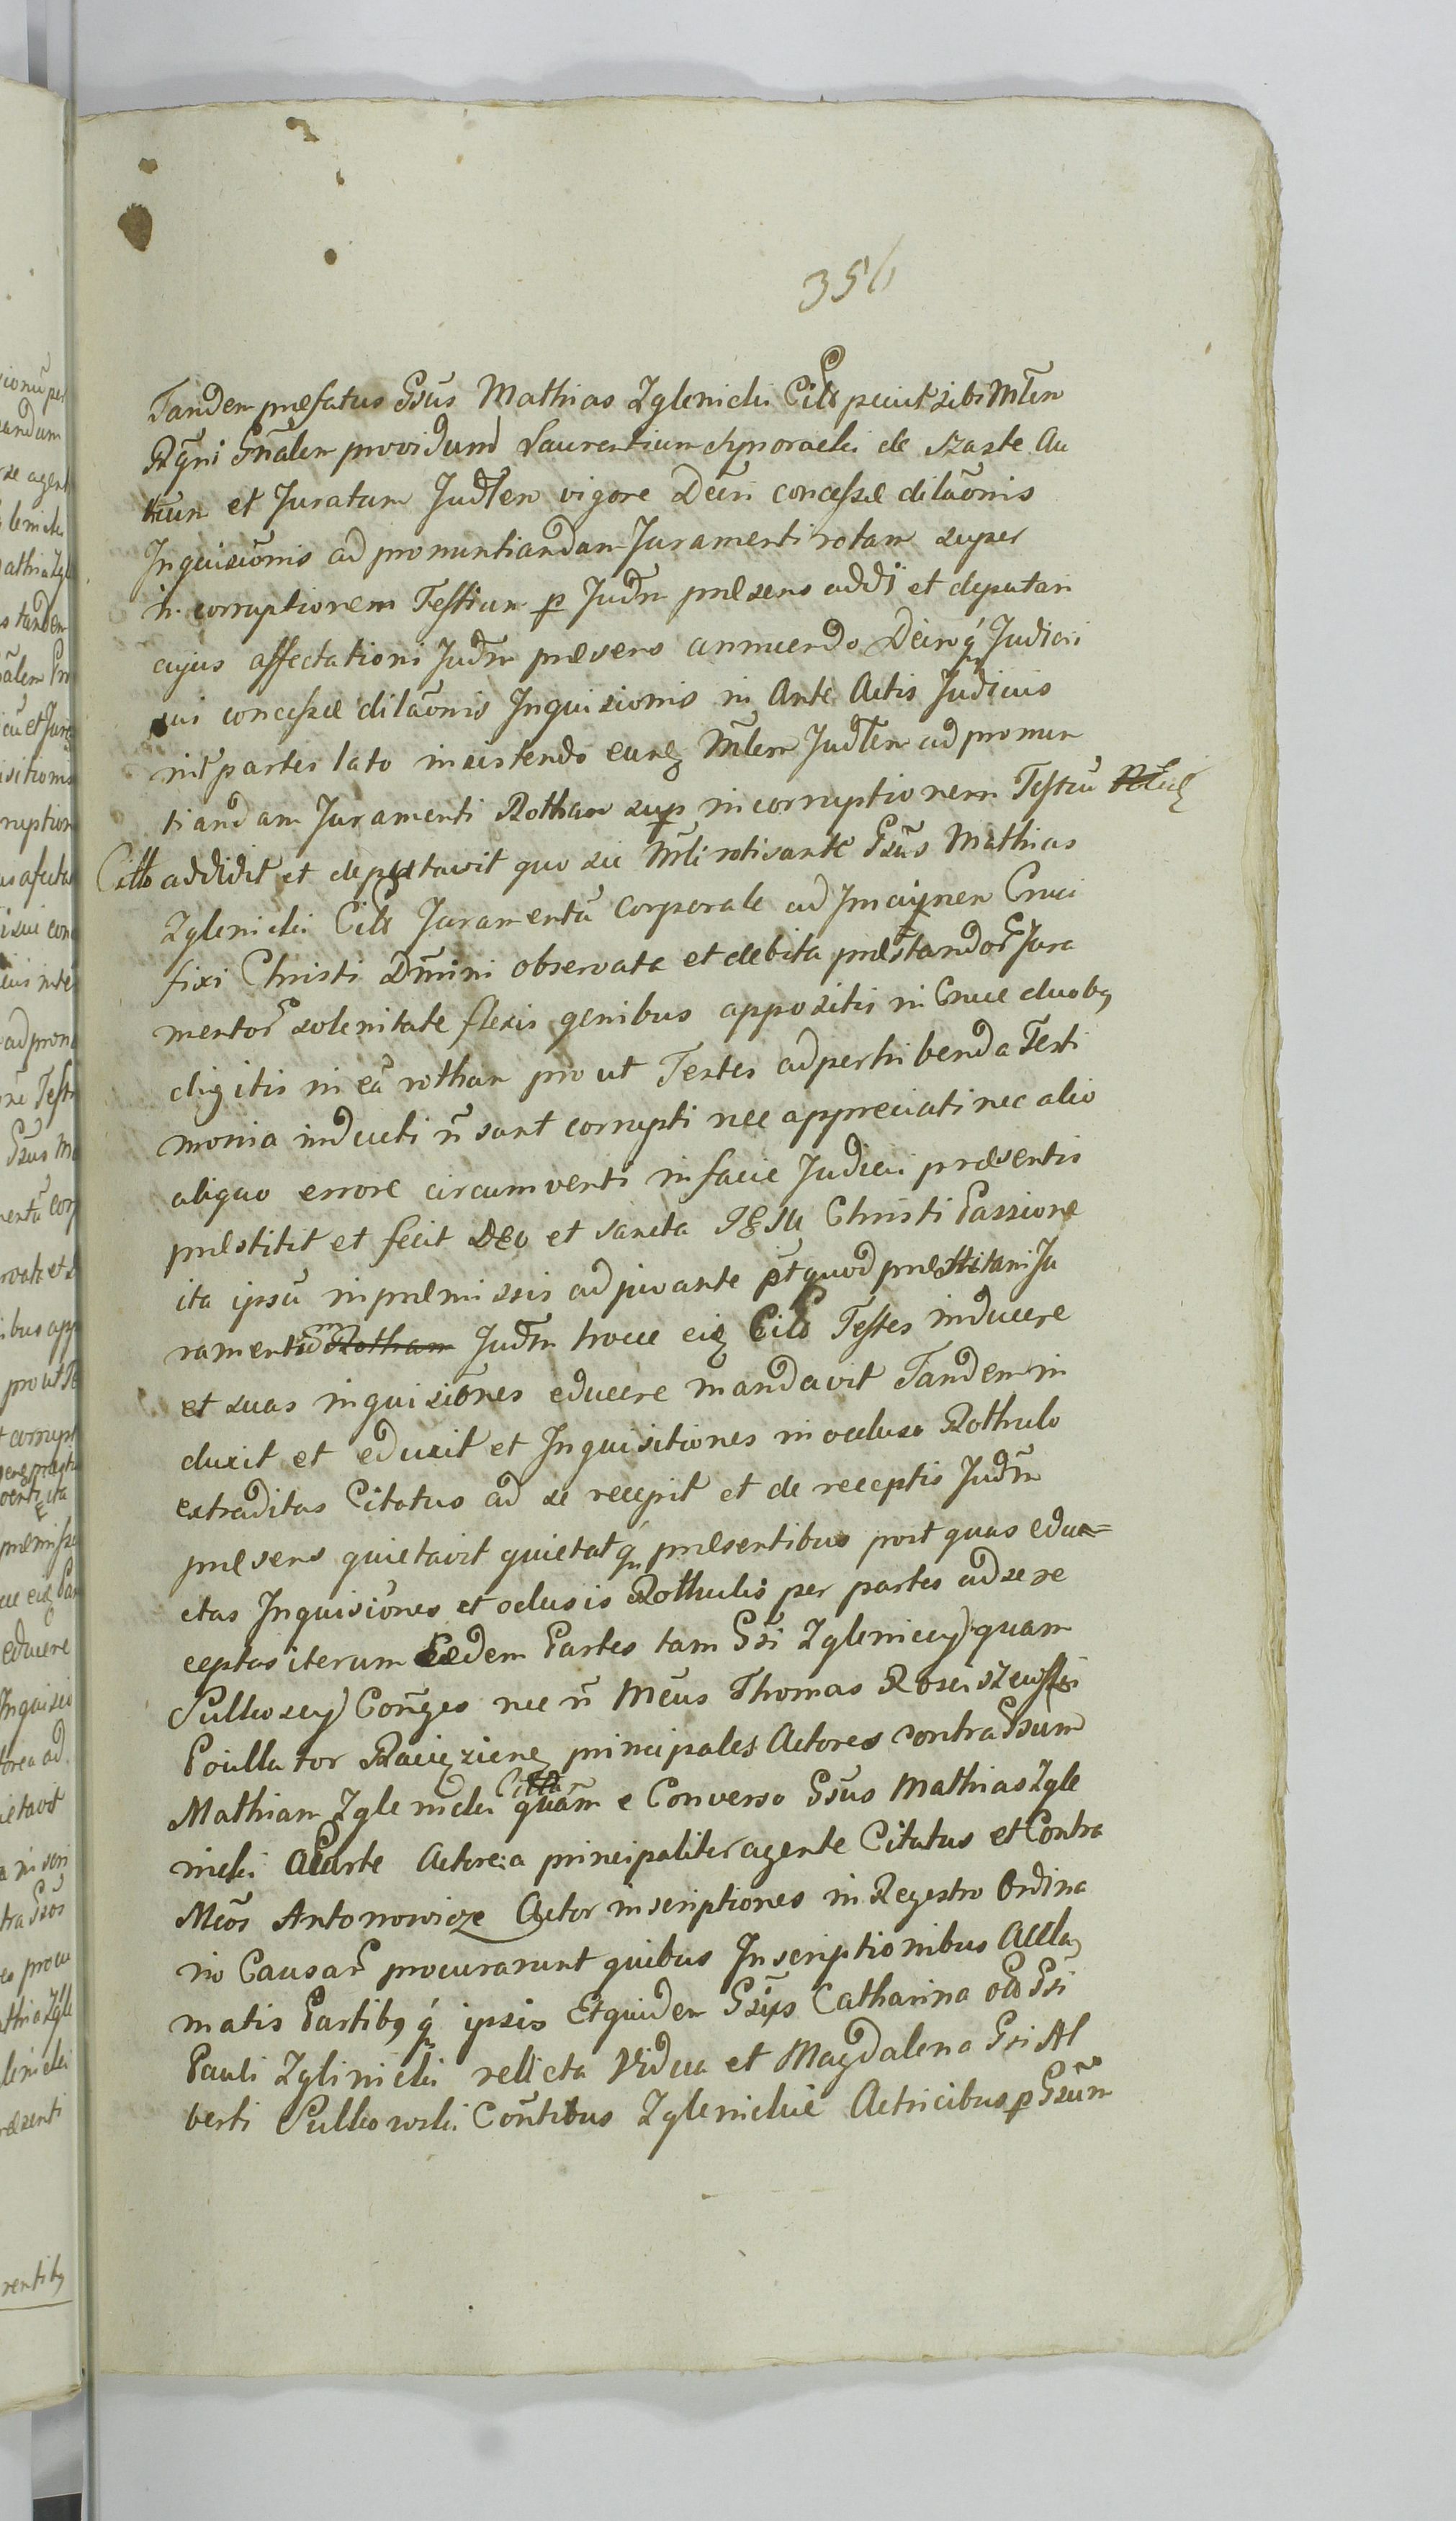 356
Tandem præfatus Gsūs Mathias Zglenicki Citts petiit sibi Mlēm
Rgni Gnālem providum Laurentium Synoracki de Szaste Au
ticum et Juratum Judlem vigore Decri concessæ dilaōnis
Inquisiōnis ad pronuntiandam Juramenti rotam super
in corruptionem Testium p Judm præsens addi et deputari
cujus affectationi Judm præsens annuendo Decroq Judicii
sui concessæ dilaōnis Inquisionis in Ante Actis Judicus
int partes lato insistendo eunq Mlēm Judlem ad pronun
tiandam Juramenti Rotham sup incorruptionem Testiū
Cittō addidit et deputavit quo sic Mli rotisante Gsūs Mathias
Zglenicki Citts Juramentū corporale ad Imaginem Cruci
fixi Christi Dmīni observata et debita præstandor Jura
mentor solenitate flexis genibus appositis in Cruce duobq
digitis in eā rotham pro ut Testes ad perhibenda Testi
monia inducti n̄ sunt corrupti nec appreciati nec alio
aliquo errore circumventi in facie Judicii præsentis
præstitit et fecit Deo et sancta JESu Christi Passione
ita ipsū in præmissis adjuvante pt quod præstitani Ju
ramentum Rotham Judm hocce eiq Citto Testes inducere
et suas inquisiones educere mandavit Tandem in
duxit et eduxit et Inquisitiones in ocluso Rothulo
extraditas Citatus ad se recepit et de receptis Judm
præsens quietavit quietatq præsentibus post quas educ=
ctas Inquisiōnes et oclusis Rothulis per partes ad se re
ceptas iterum Eædem Partes tam Gsi Zgleniccy quam
Sulkoscy Conges nec n̄ Mcus Thomas Rosciszewski
Poilla tor Raciązieñ principales Actores contra Gsum
Mathiam Zglenicki Cittum quam e Converso Gsūs Mathias Zgle
nicki A Parte Actorea principaliter agente Citatus et Contra
Mcos Antonowicze Actor inscriptiones in Regestro Ordina
rio Causar procurarunt quibus Inscriptionibus Accla
matis Partibqq ipsis Et quidem Gsis Catharina olo Gsi
Pauli Zglinicki relicta Vidua et Magdalena Gsi Al
berti Sulkowski Contibus Zglenickie Actricibus p Gsum